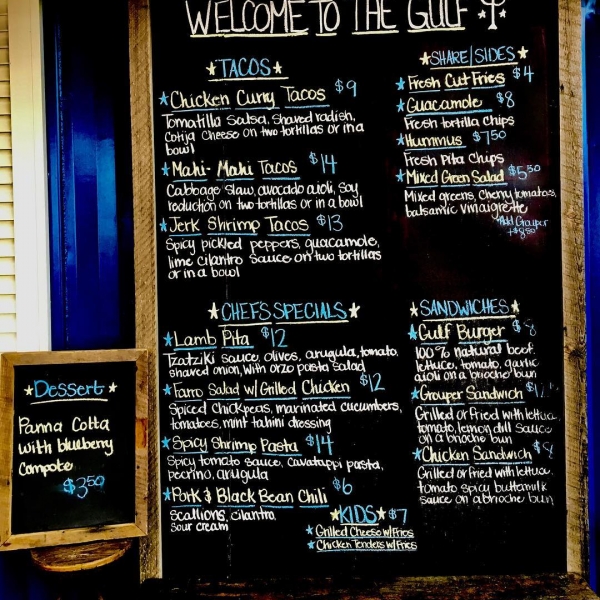 WELCOME TO THE GULF
TACOS
Chicken Curry Tacos $9
Tomatilla Salsa, Shaved radish,
Cotija Cheese on two tortillas or in a
bowl
Mahi-Mahi Tacos $14
Cabbage Slaw, avocado aioli, Soy
reduction on two tortillas or in a bowl
Jerk Shrimp Tacos $13
Spicy pickled peppers, guacamole,
lime cilantro Sauce on two tortillas
or in a bowl
SHARE/SIDES
Fresh Cut Fries $4
Guacamole $8
Fresh tortilla Chips
Hummus $7.50
Fresh Pita Chips
Mixed Green Salad $5.50
Mixed greens, Cherry tomatoes,
balsamic vinaigrette
Add Grouper
+$8.50
CHEFS SPECIALS
Lamb Pita $12
Tzatziki sauce, olives, arugula, tomato,
shaved onion, with orzo pasta salad
Farro Salad w/ Grilled Chicken $12
Spiced Chickpeas, marinated cucumbers,
tomatoes, mint tahini dressing
Spicy Shrimp Pasta $14
Spicy tomato sauce, cavatappi pasta,
pecrino, arugula
Pork & Black Bean Chili $6
Scallions, cilantro,
sour cream
KIDS $7
Grilled Cheese w/Fries
Chicken Tenders w/Fries
SANDWICHES
Gulf Burger $8
100% natural beef,
lettuce, tomato, garlic
aioli on a brioche bun
Grouper Sandwich
Grilled or Fried with lettuce,
tomato, lemon dill sauce
on a brioche bun
Chicken Sandwich $8
Grilled or fried with lettuce,
tomato spicy buttermilk
sauce on a brioche bun
Dessert
Panna Cotta
with blueberry
Compote
$3.50